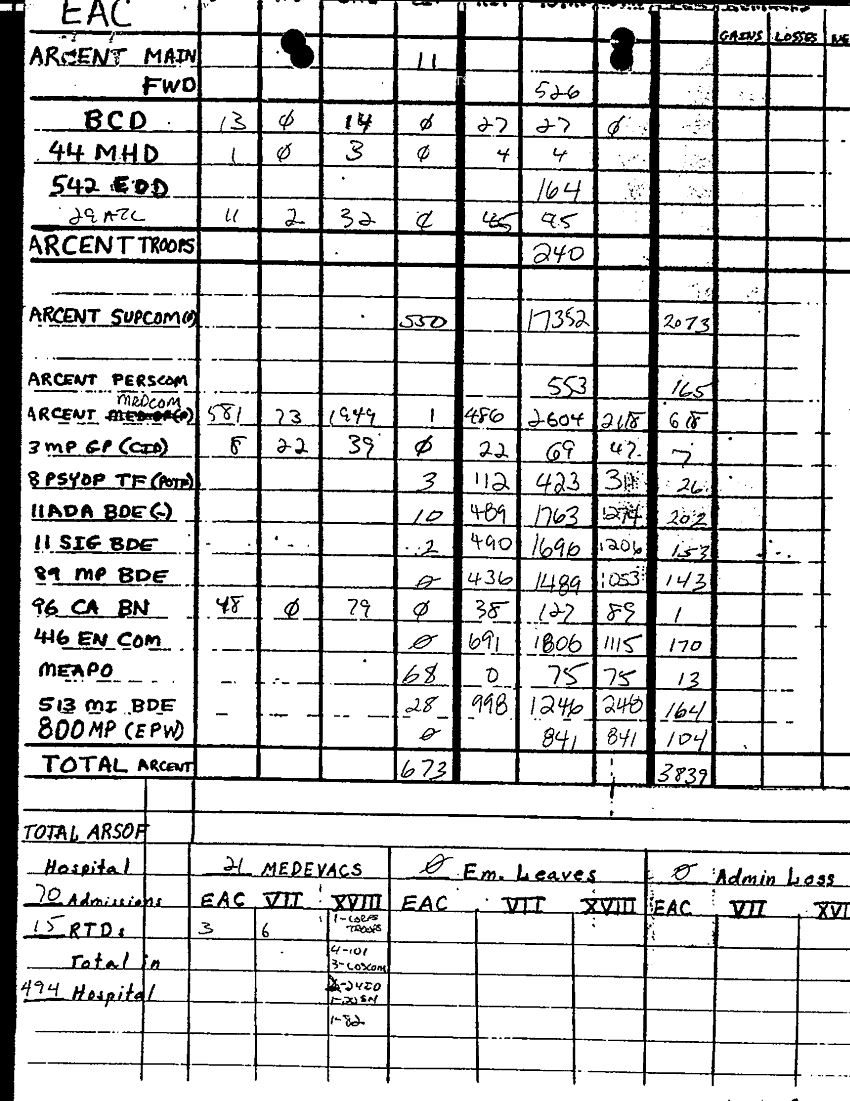 EAC
GAINS LOSSES
ARCENT MAIN 11
FWD 526
BCD 13 Ø 14 Ø 27 27 Ø
44 MHD 1 Ø 3 Ø 4 4
542 EOD 164
29 ATC 11 2 32 Ø 45
ARCENT TROOPS 240
ARCENT SUPCOM(P) 550 17352 2073
ARCENT PERSCOM 553 165
MEDCOM
ARCENT 581 73 1949 1 486 2604 2118 618
3 MP GP (CID) 8 22 39 Ø 22 69 47 7
8 PSYOP TF (POTF) 3 112 423 311 26
11 ADA BDE (-) 10 489 1763 1274 202
11 SIG BDE 2 490 1696 1206 153
89 MP BDE Ø 436 1489 1053 143
96 CA BN 48 Ø 79 Ø 38 127 89 1
416 EN COM Ø 691 1806 1115 170
MEAPO 68 0 75 75 13
513 MI BDE 28 998 1246 248 164
800 MP (EPW) Ø 841 841 104
TOTAL ARCENT 673 3839
TOTAL ARSOF
Hospital 21 MEDEVACS Ø Em. Leaves Ø Admin Loss
70 Admissions EAC VII XVIII EAC VII XVIII EAC VII XVI
15 RTDs 3 6 1-CORPS TROOPS
Total in 4-101
3-COSCOM
494 Hospital
1-82